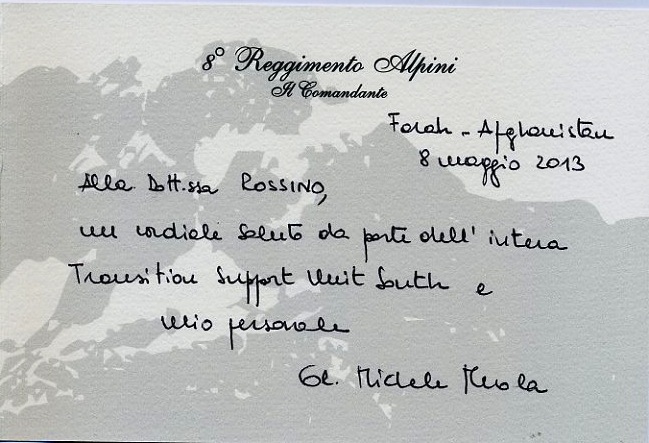 8° Reggimento Alpini
Il Comandante
Farah - Afghanistan
8 maggio 2013
Alla Dott.ssa ROSSINO,
un cordiale saluto da parte dell' intera
Transition Support Unit South e
mio personale
Col. Michele Merola